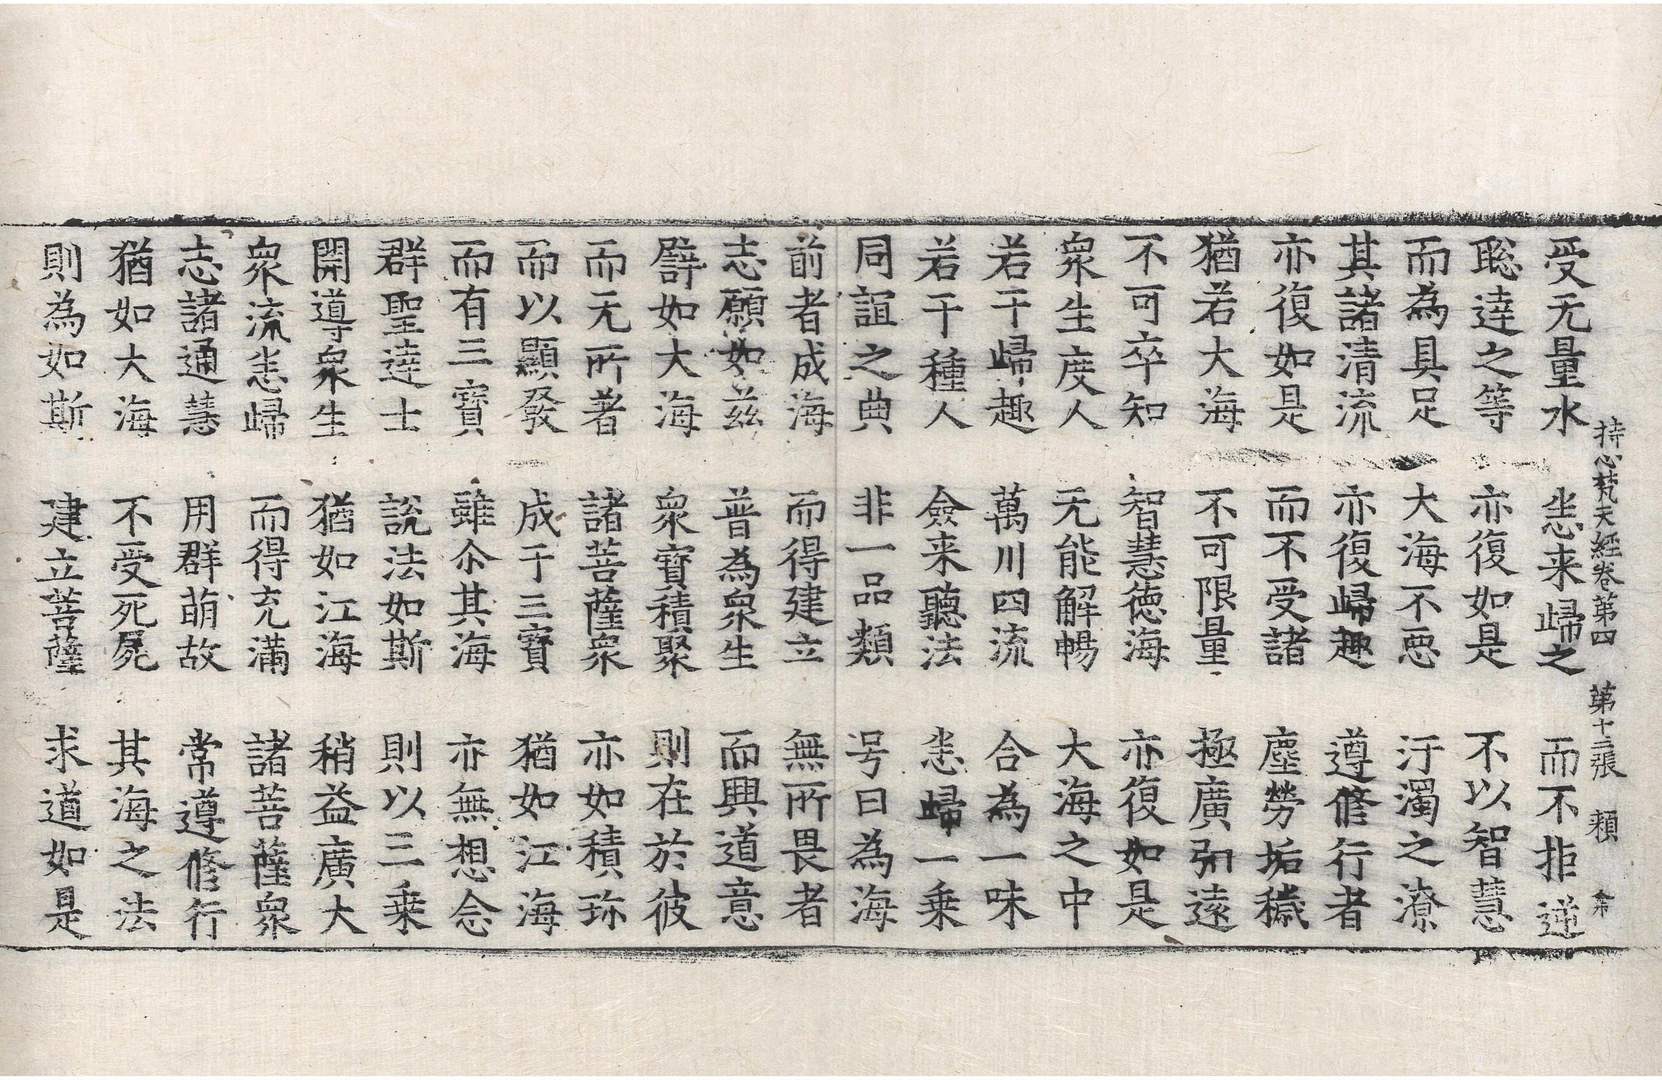 持心梵天經卷第四 第十三張 頼
受无量水 恙来歸之 而不拒逆
聡達之等 亦復如是 不以智慧
而為具足 大海不惡 汙濁之潦
其諸清流 亦復歸趣 遵修行者
亦復如是 而不受諸 塵勞垢穢
猶若大海 不可限量 極廣弘遠
不可卒知 智慧徳海 亦復如是
衆生度人 无能解暢 大海之中
若干歸趣 萬川四流 合為一味
若干種人 僉来聽法 恙歸一乗
同誼之典 非一品類 号曰為海
前者成海 而得建立 無所畏者
志願如兹 普為衆生 而興道意
譬如大海 衆寶積聚 則在於彼
而无所著 諸菩薩衆 亦如積珎
而以顯發 成于三寶 猶如江海
而有三寶 雖尒其海 亦無想念
群聖達士 説法如斯 則以三乗
開導衆生 猶如江海 稍益廣大
衆流恙歸 而得充滿 諸菩薩衆
志諸通慧 用群萌故 常遵修行
猶如大海 不受死屍 其海之法
則為如斯 建立菩薩 求道如是